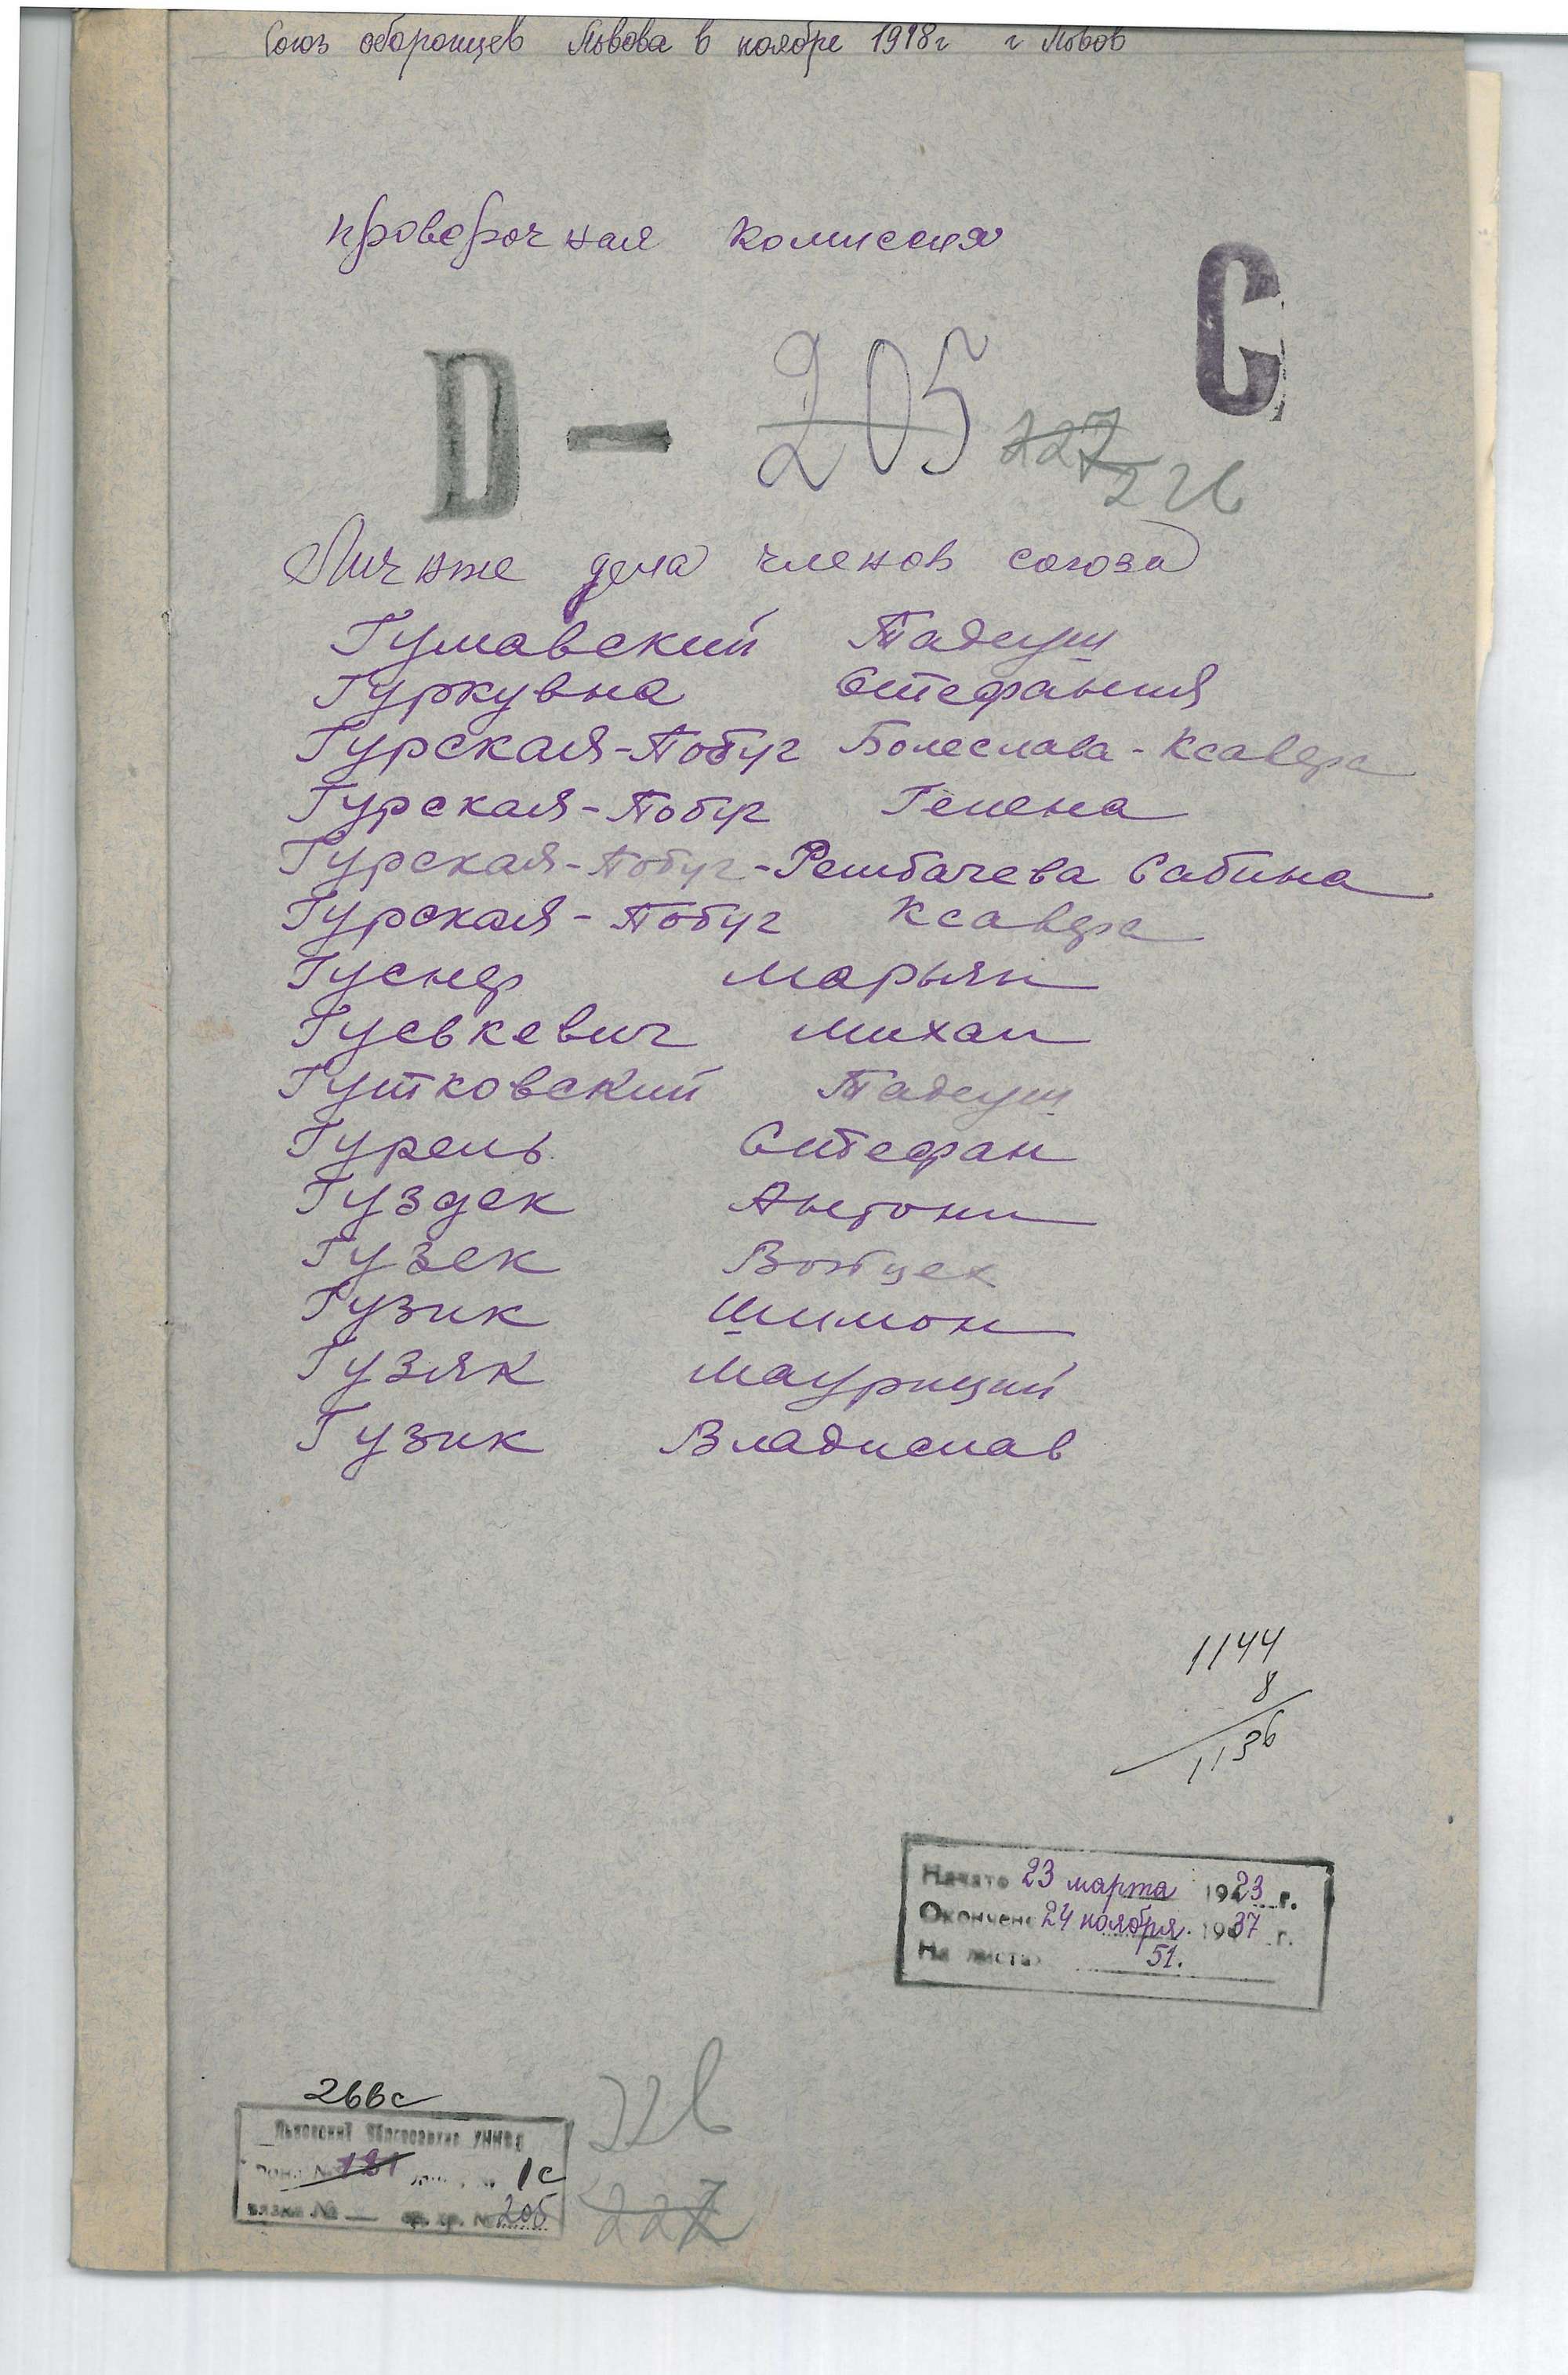 Союз оборонцев Львова в ноябре 1918г г Львов
проверочная комиссия
C
D - 205 227
226
Личные дела членов союза
Гумавский Тадеуш
Гуркувна Стефания
Гурская-Побуг Болеслава-Ксавера
Гурская-Побуг Гелена
Гурская-Побуг-Рембачева Сабина
Гурская-Побуг Ксавера
Гуснер Марьян
Гуськевич Михал
Гутковский Тадеуш
Гурель Стефан
Гуздек Антони
Гузек Войцех
Гузик Шимон
Гузяк Мауриций
Гузик Владислав
1144
8
1136
Начато 23 марта 1923 г.
Окончено 24 ноября 1937 г.
На листах 51.
266с
226
Львовский Облгосархив УНКВД
Фонд № 131 1с
вязки № — ед. хр. № 205
227